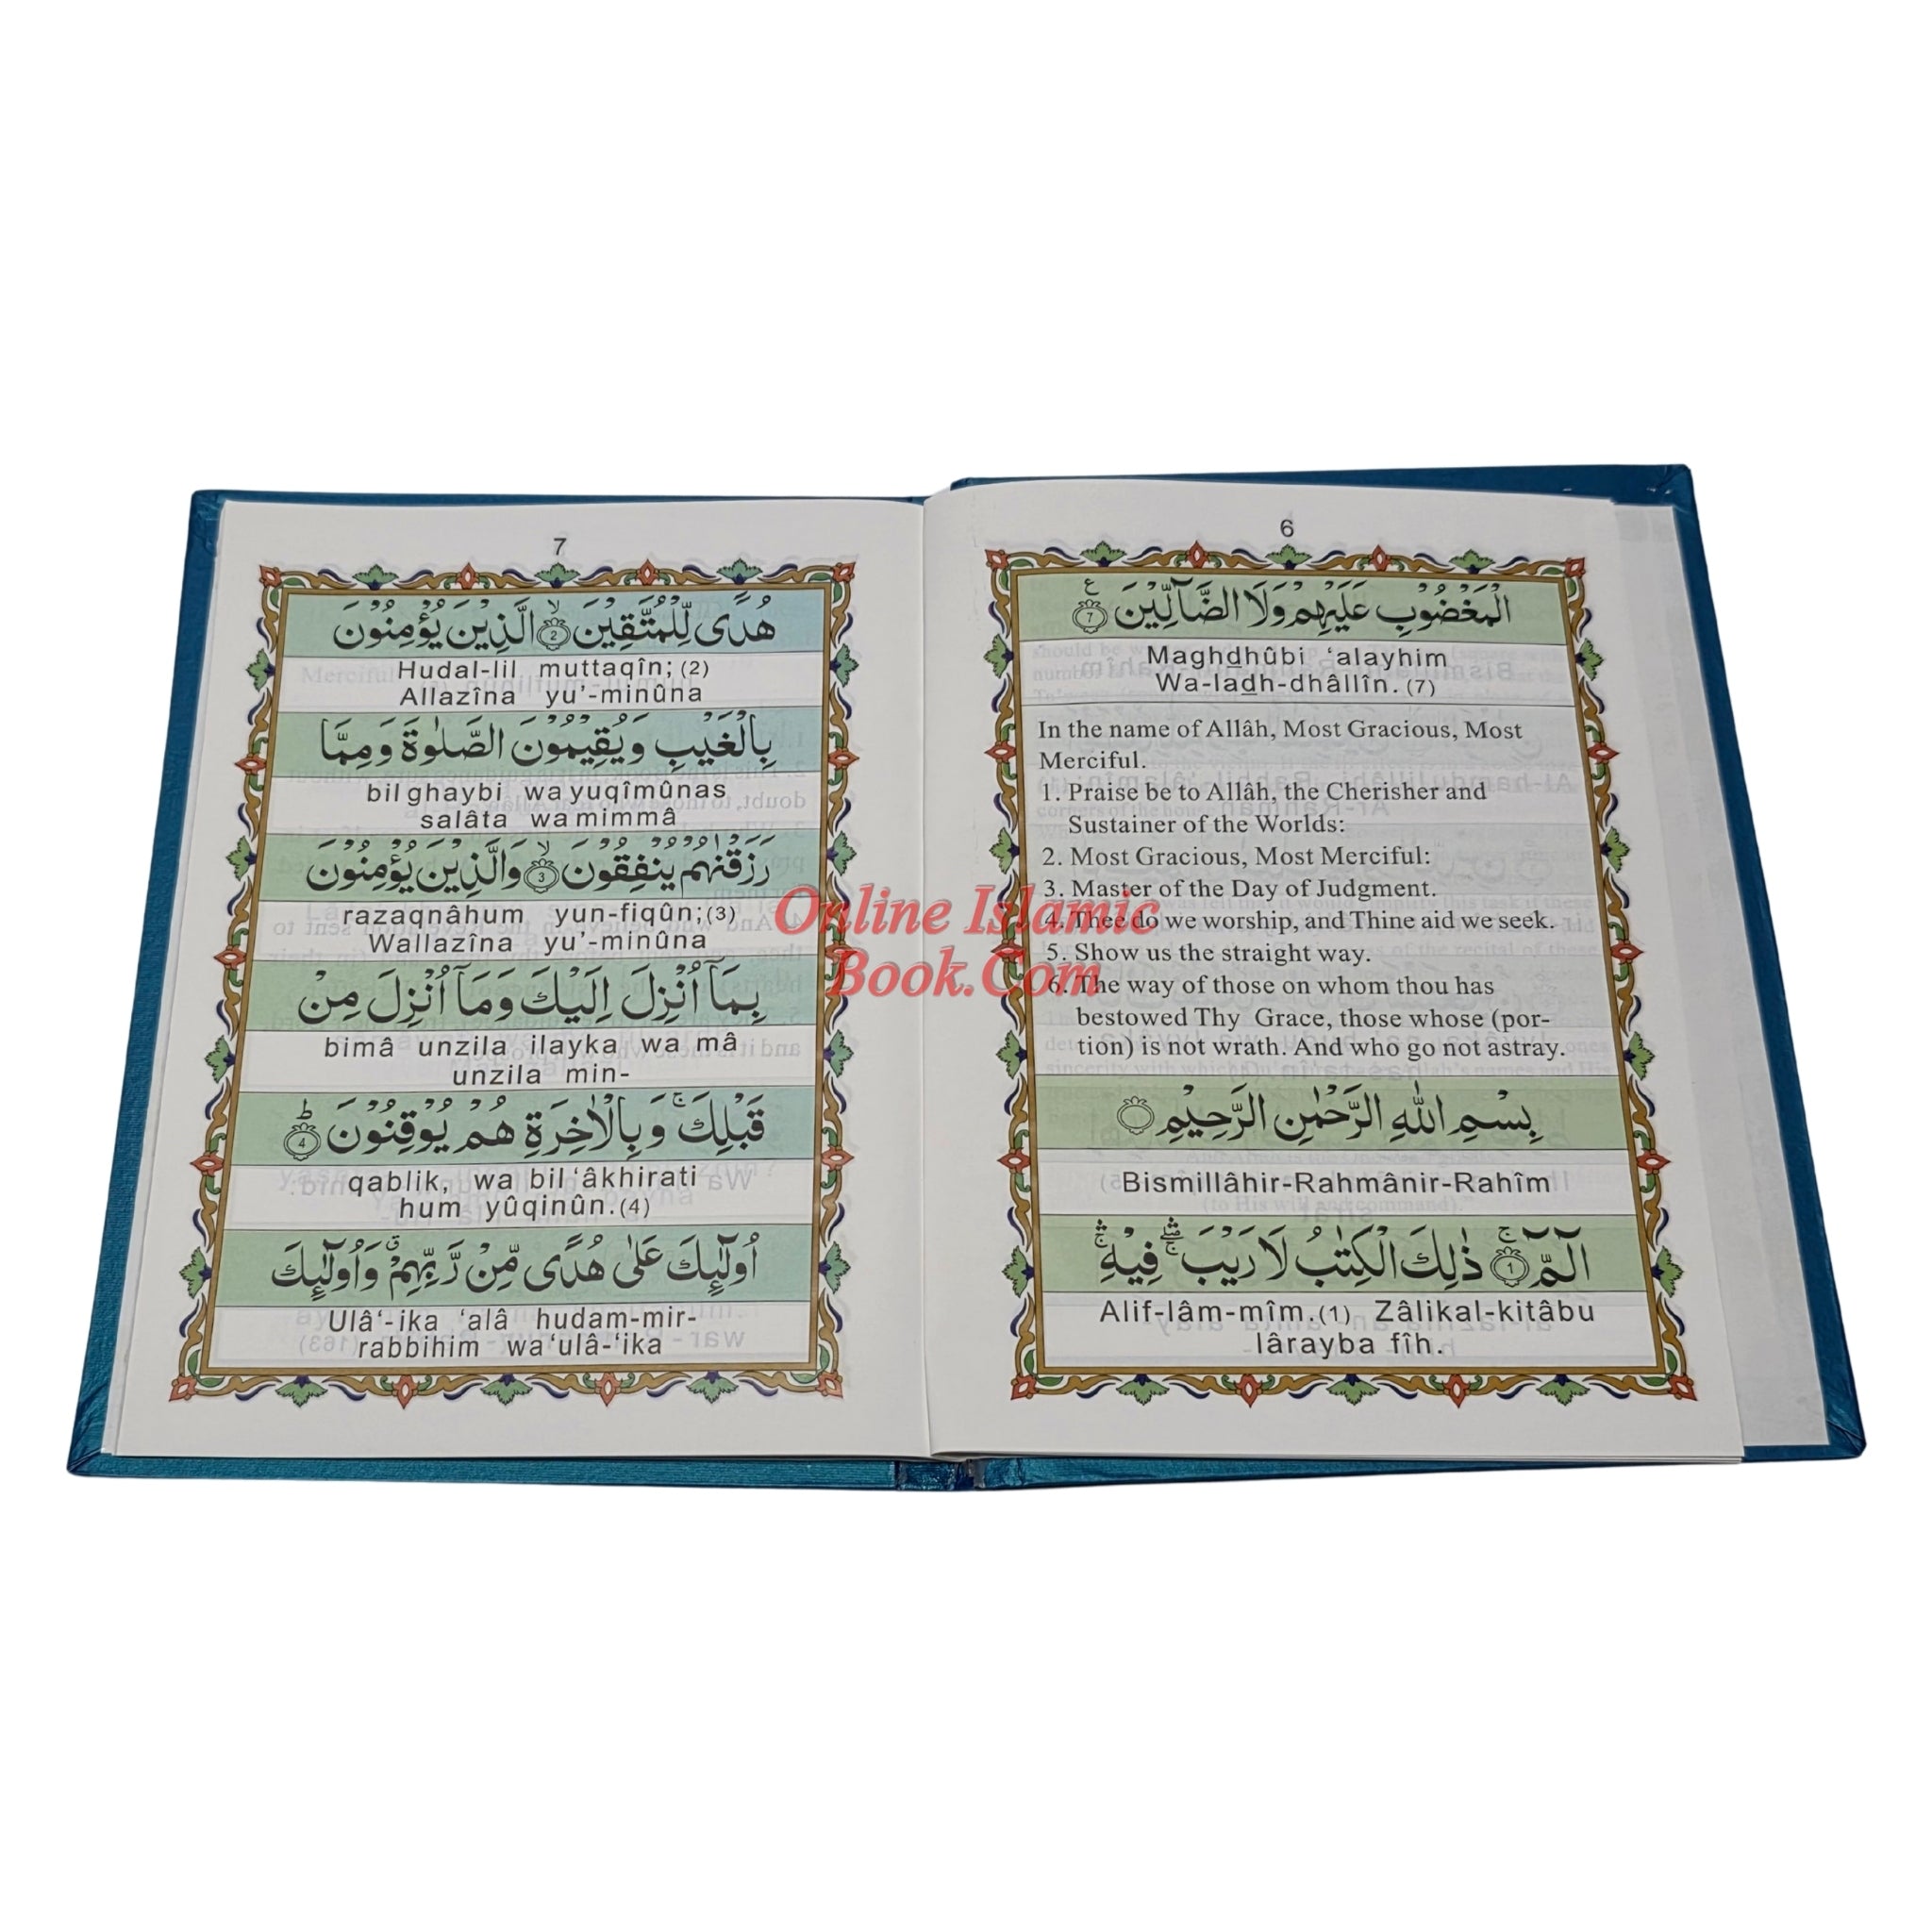 6
الْمَغْضُوْبِ عَلَيْهِمْ وَلَا الضَّآلِّيْنَ ۧ 7
Maghdhûbi ‘alayhim
Wa-ladh-dhâllîn.(7)
In the name of Allâh, Most Gracious, Most
Merciful.
1. Praise be to Allâh, the Cherisher and
Sustainer of the Worlds:
2. Most Gracious, Most Merciful:
3. Master of the Day of Judgment.
4. Thee do we worship, and Thine aid we seek.
5. Show us the straight way.
6. The way of those on whom thou has
bestowed Thy Grace, those whose (por-
tion) is not wrath. And who go not astray.
بِسْمِ اللّٰهِ الرَّحْمٰنِ الرَّحِيْمِ
Bismillâhir-Rahmânir-Rahîm
الٓمّٓ ۚ 1 ذٰلِكَ الْكِتٰبُ لَا رَيْبَ ۛ فِيْهِ ۛ
Alif-lâm-mîm.(1) Zâlikal-kitâbu
lârayba fîh.
7
هُدًى لِّلْمُتَّقِيْنَ ۙ 2 الَّذِيْنَ يُؤْمِنُوْنَ
Hudal-lil muttaqîn;(2)
Allazîna yu’-minûna
بِالْغَيْبِ وَيُقِيْمُوْنَ الصَّلٰوةَ وَمِمَّا
bil ghaybi wa yuqîmûnas
salâta wa mimmâ
رَزَقْنٰهُمْ يُنْفِقُوْنَ ۙ 3 وَالَّذِيْنَ يُؤْمِنُوْنَ
razaqnâhum yun-fiqûn;(3)
Wallazîna yu’-minûna
بِمَآ اُنْزِلَ اِلَيْكَ وَمَآ اُنْزِلَ مِنْ
bimâ unzila ilayka wa mâ
unzila min-
قَبْلِكَ ۚ وَبِالْاٰخِرَةِ هُمْ يُوْقِنُوْنَ ؕ 4
qablik, wa bil‘âkhirati
hum yûqinûn.(4)
اُولٰٓئِكَ عَلٰى هُدًى مِّنْ رَّبِّهِمْ ۗ وَاُولٰٓئِكَ
Ulâ‘-ika ‘alâ hudam-mir-
rabbihim wa‘ulâ-‘ika
Online Islamic
Book.Com